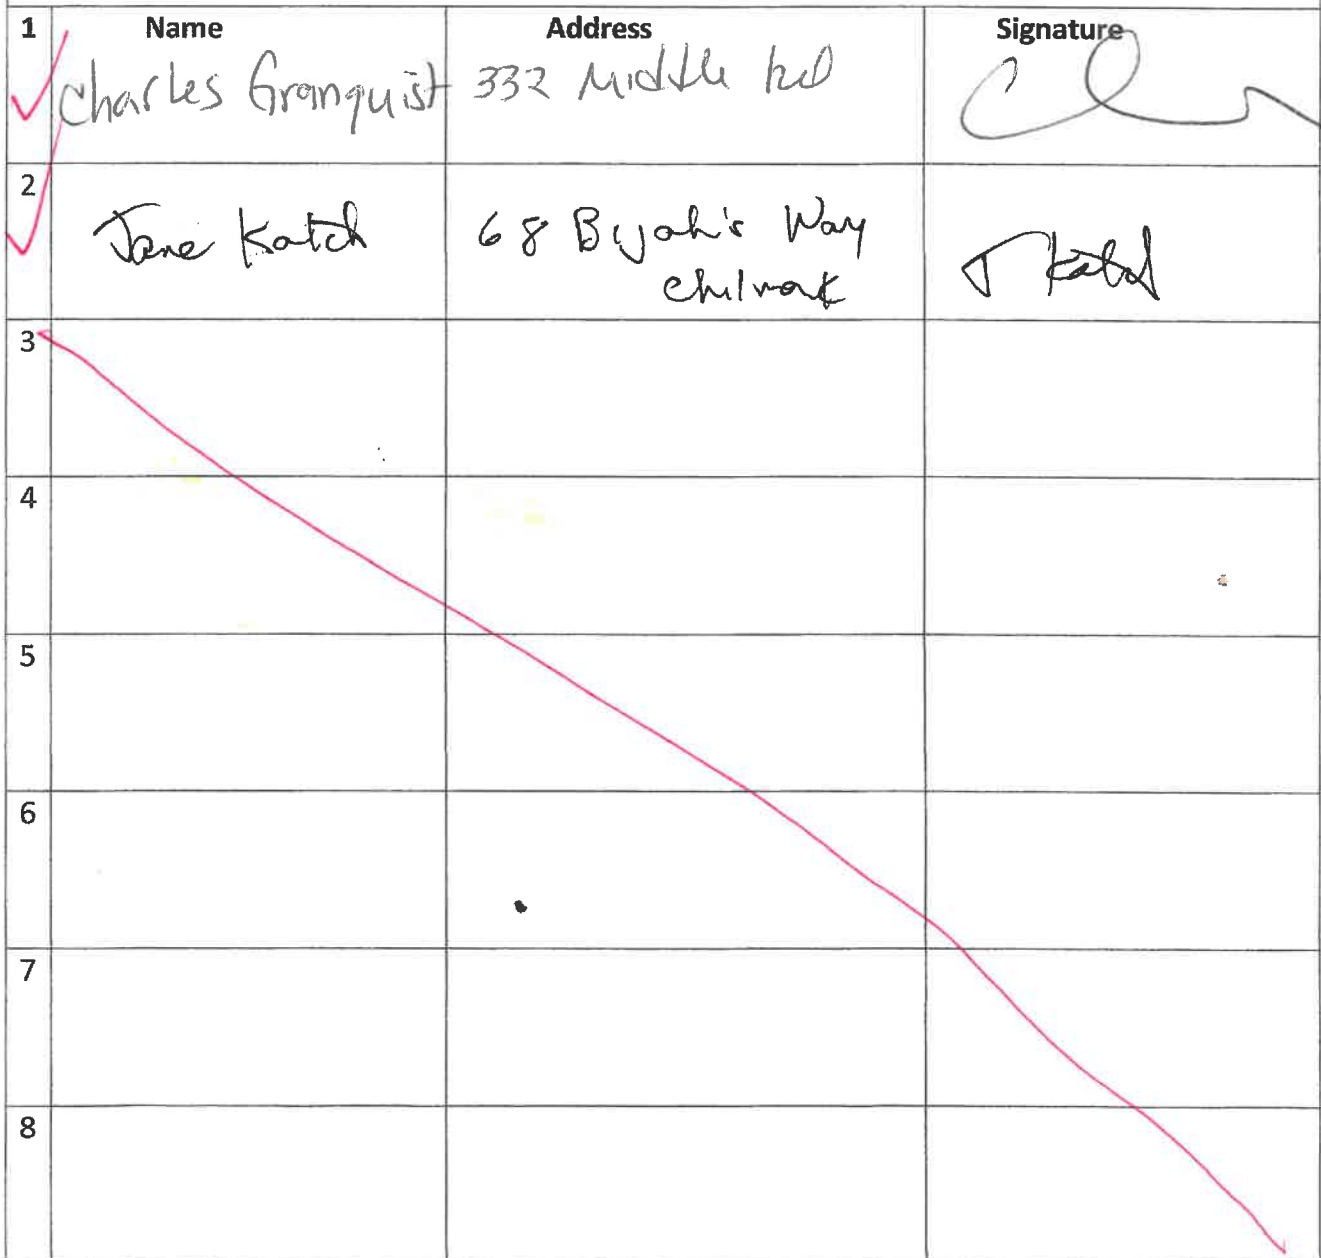 1 Name Address Signature
Charles Granquist 332 Middle Rd
2
Jane Katch 68 Bijah's Way J Katch
Chilmark
3
4
5
6
7
8